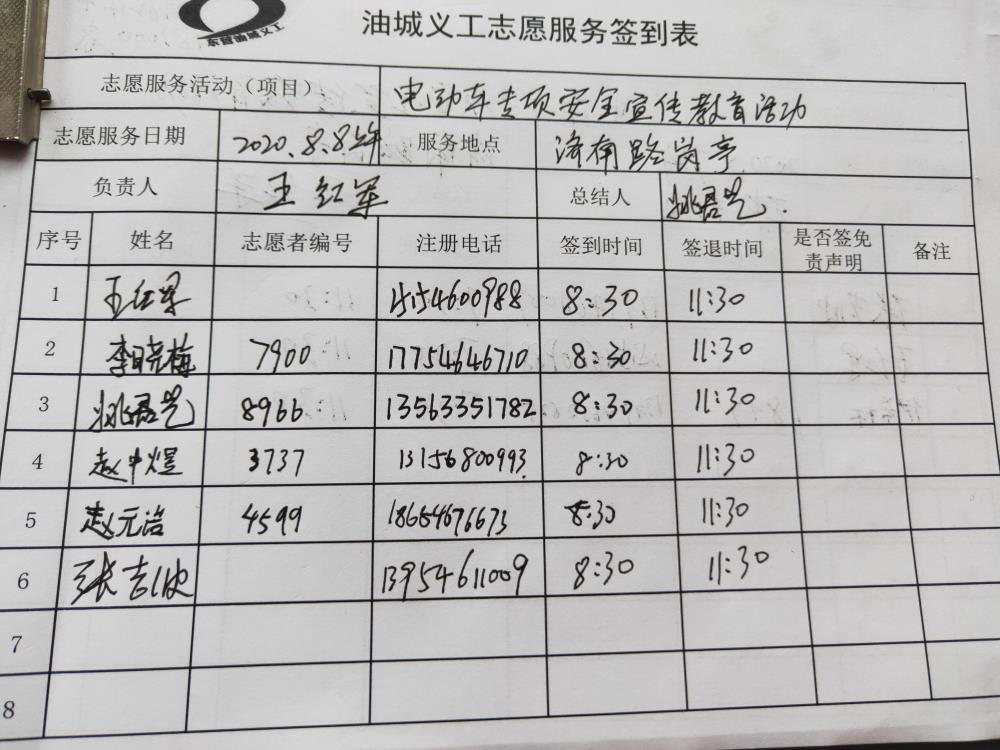 东营油城义工
油城义工志愿服务签到表
志愿服务活动（项目） 电动车专项安全宣传教育活动
志愿服务日期 2020.8.8上午 服务地点 济南路岗亭
负责人 王红军 总结人 姚君芝.
序号 姓名 志愿者编号 注册电话 签到时间 签退时间 是否签免责声明 备注
1 王红军 15154600988 8:30 11:30
2 李晓梅 7900 17754646710 8:30 11:30
3 姚君芝 8966 13563351782 8:30 11:30
4 赵中煜 3737 13156800993 8:30 11:30
5 赵元浩 4599 18654676673 8:30 11:30
6 张吉 13954611009 8:30 11:30
7
8